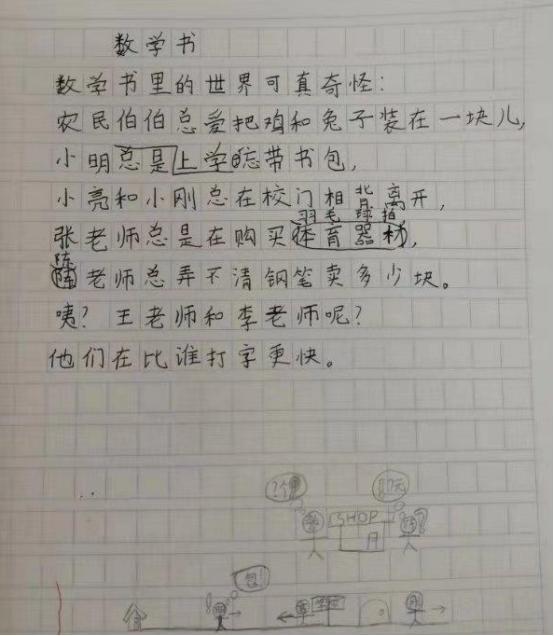 数学书
数学书里的世界可真奇怪：
农民伯伯总爱把鸡和兔子装在一块儿，
小明总是上学忘带书包，
小亮和小刚总在校门相背离开，
羽毛球拍
张老师总是在购买体育器材，
陈
老师总弄不清钢笔卖多少块。
咦？王老师和李老师呢？
他们在比谁打字更快。
SHOP